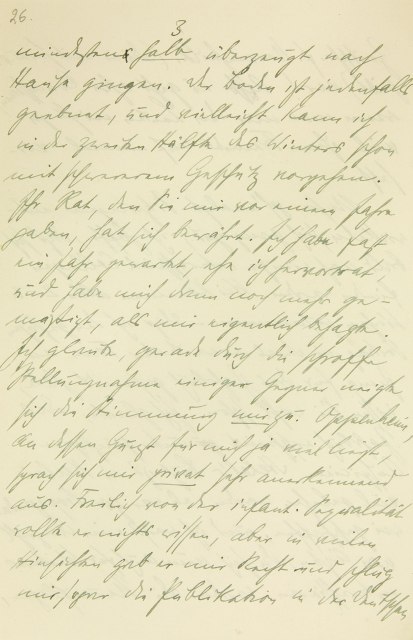 26.
3
mindestens halb überzeugt nach
Hause gingen. Der Boden ist jedenfalls
geebnet, und vielleicht kann ich
in der zweiten Hälfte des Winters schon
mit schwererem Geschütz vorgehen.
Ihr Rat, den Sie mir vor einem Jahre
gaben, hat sich bewährt. Ich habe fast
ein Jahr gewartet, ehe ich hervortrat
und habe mich dann noch mehr ge-
mäßigt, als mir eigentlich behagte.
Ich glaube, gerade durch die schroffe
Stellungnahme einiger Gegner neigte
sich die Stimmung mir zu. Oppenheim,
an dessen Gunst für mich ja viel liegt,
sprach sich mir privat sehr anerkennend
aus. Freilich von der infant. Sexualität
wollte er nichts wissen, aber in vielen
Hinsichten gab er mir Recht und schlug
mir sogar die Publikation in der Deutschen